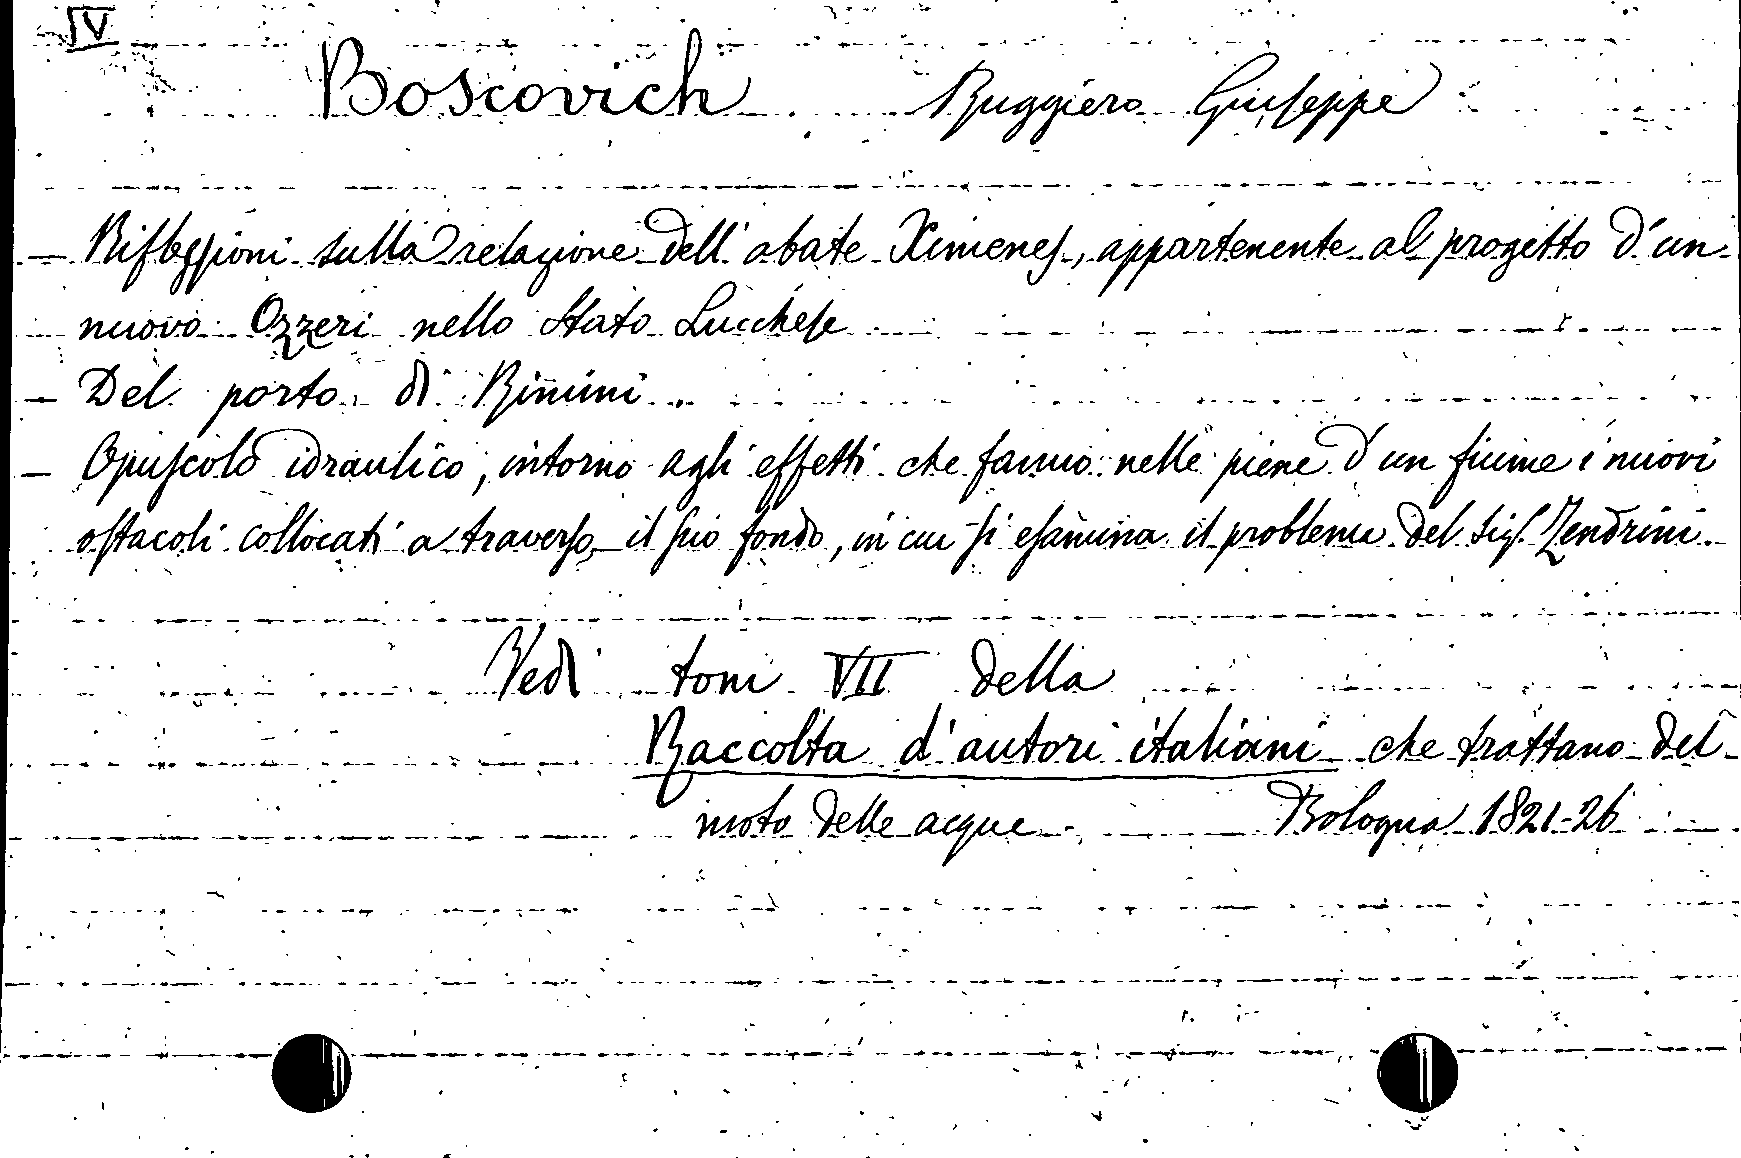 IV
Boscovich Ruggiero Giuseppe
– Riflessioni sulla relazione dell'abate Ximenes, appartenente al progetto d'un
nuovo Ozzeri nello Stato Lucchese
– Del porto di Rimini
– Opuscolo idraulico, intorno agli effetti che fanno nelle piene d'un fiume i nuovi
ostacoli collocati a traverso il suo fondo, in cui si esamina il problema del sig. Zendrini.
Vedi tom VII della
Raccolta d'autori italiani che trattano del
moto delle acque Bologna 1821-26